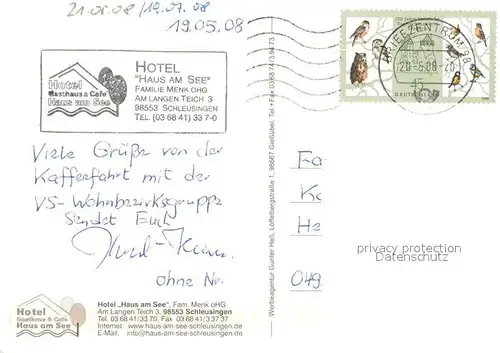 21.05.08 / 19.07.08
19.05.08
HOTEL
"HAUS AM SEE"
FAMILIE MENK OHG
AM LANGEN TEICH 3
98553 SCHLEUSINGEN
TEL. (03 68 41) 33 7-0
Hotel
Gasthaus & Cafe
Haus am See
BRIEFZENTRUM 98
45
DEUTSCHLAND
Viele Grüße von der
Kaffeefahrt mit der
VS-Wohnbezirksgruppe
Sendet Euch
ohne Nr.
Werbeagentur Gunter Heß, Loffelbergstraße 1, 98667 Gießübel, Tel + Fax 03 68 74/3 94 73
Fa
Ko
He
049
privacy protection
Datenschutz
Hotel
Gasthaus & Cafe
Haus am See
Hotel „Haus am See", Fam. Menk oHG
Am Langen Teich 3, 98553 Schleusingen
Tel. 03 68 41/33 70, Fax 03 68 41/3 37 37
Internet: www.haus-am-see-schleusingen.de
E-Mail: info@haus-am-see-schleusingen.de